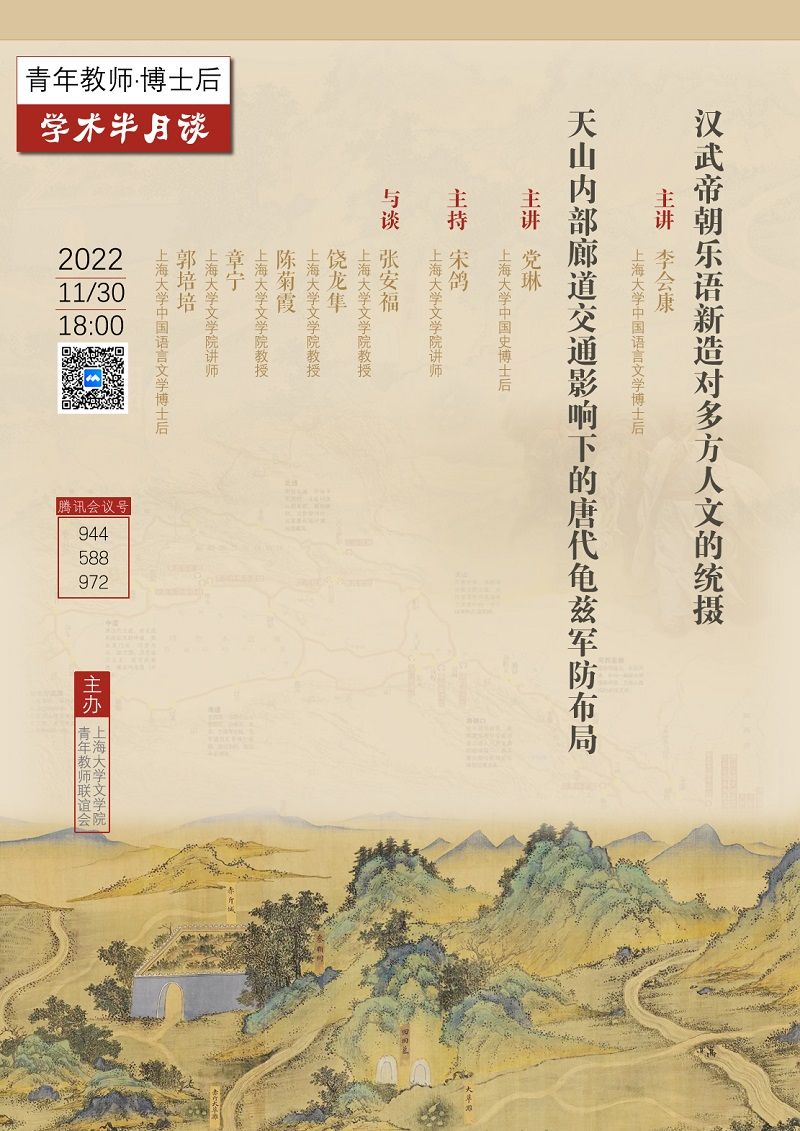 青年教师·博士后
学术半月谈
汉武帝朝乐语新造对多方人文的统摄
主讲
李会康
上海大学中国语言文学博士后
天山内部廊道交通影响下的唐代龟兹军防布局
主讲
党琳
上海大学中国史博士后
主持
宋鸽
上海大学文学院讲师
与谈
张安福
上海大学文学院教授
饶龙隼
上海大学文学院教授
陈菊霞
上海大学文学院教授
章宁
上海大学文学院讲师
郭培培
上海大学中国语言文学博士后
2022
11/30
18:00
腾讯会议号
944
588
972
主办
上海大学文学院
青年教师联谊会
赤斤城
回回墓
大草滩